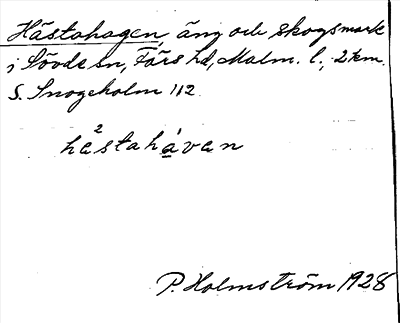 Hästahagen, äng och skogsmark
i Sövde sn, Färs hd, Malm. l., 2 km.
S. Snogeholm 1/12.
hä²stahávan
P. Holmström 1928